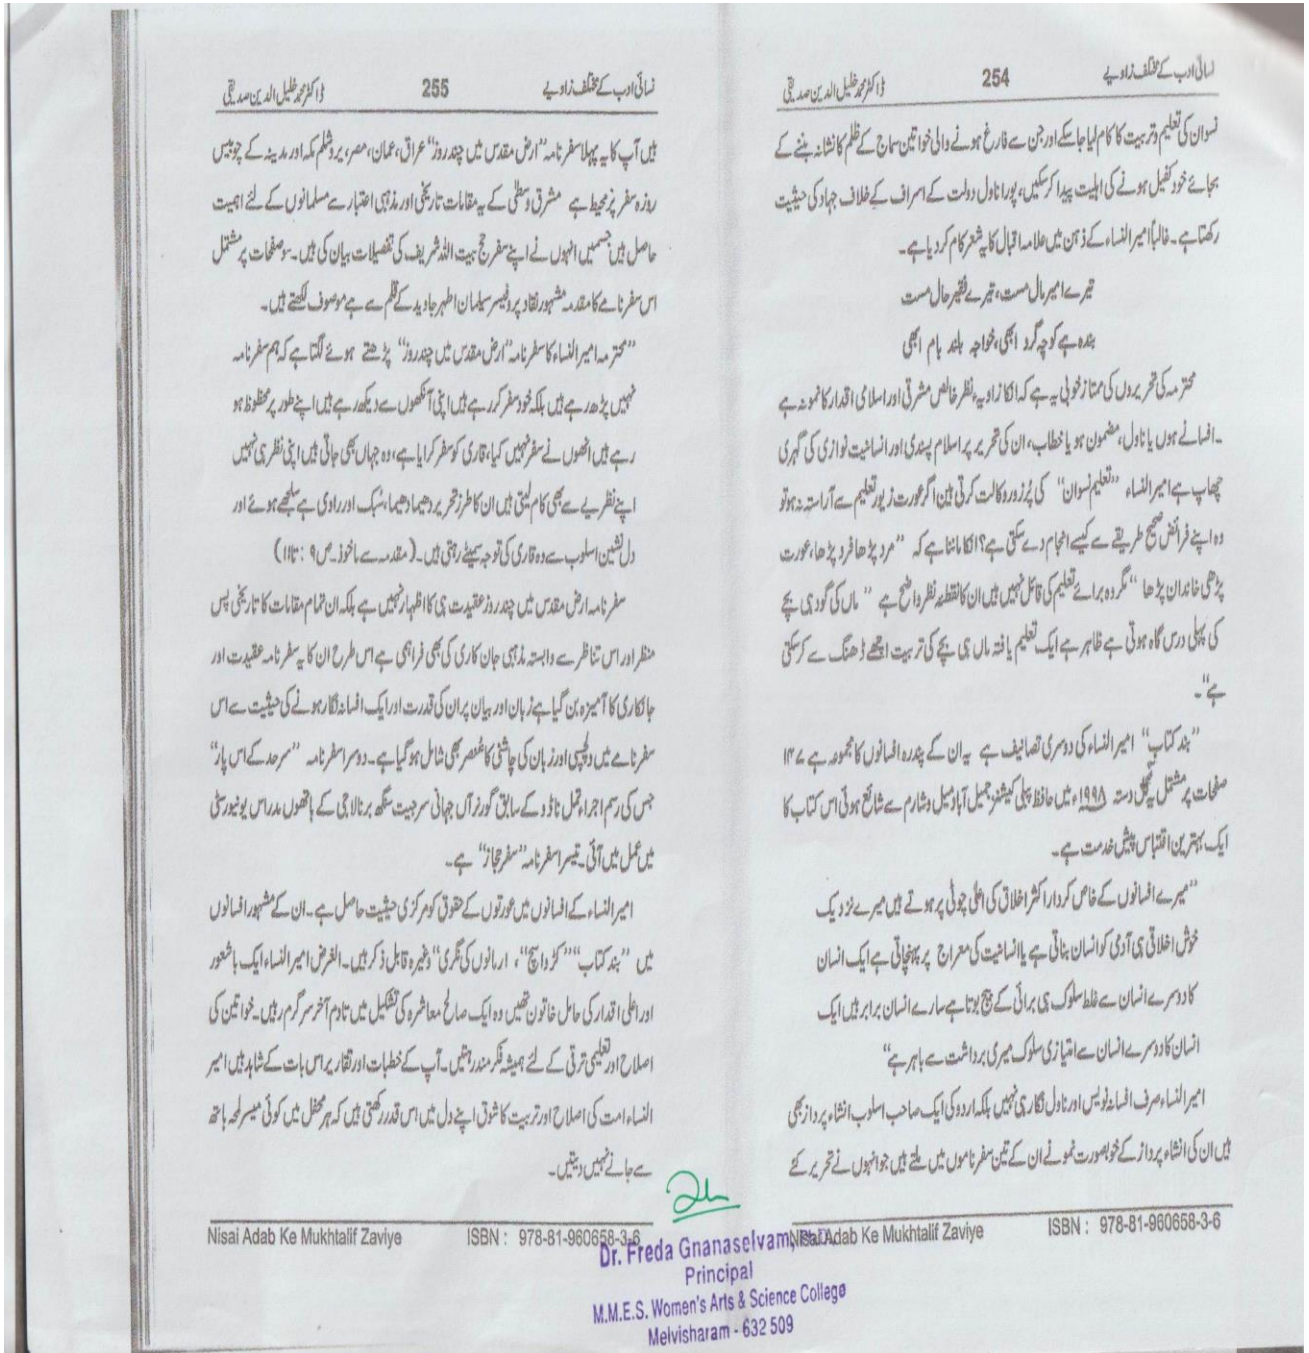 نسائی ادب کے مختلف زاویے 254 ڈاکٹر محمد خلیل الدین صدیقی
نسوان کی تعلیم و تربیت کا کام لیا جا سکے اور جن سے فارغ ہونے والی خواتین سماج کے ظلم کا نشانہ بننے کے
بجائے خود کفیل ہونے کی اہلیت پیدا کر سکیں، پورا ناول دولت کے اسراف کے خلاف جہاد کی حیثیت
رکھتا ہے۔ غالباً امیر النساء کے ذہن میں علامہ اقبال کا یہ شعر کام کر دیا ہے۔
تیرے امیر مال مست، تیرے فقیر حال مست
بندہ ہے کوچہ گرد ابھی، خواجہ بلند بام ابھی
محترمہ کی تحریروں کی ممتاز خوبی یہ ہے کہ انکا زاویہء نظر خالص مشرقی اور اسلامی اقدار کا نمونہ ہے
۔افسانے ہوں یا ناول، مضمون ہو یا خطاب، ان کی تحریر پر اسلام پسندی اور انسانیت نوازی کی گہری
چھاپ ہے امیر النساء ”تعلیم نسوان“ کی پُر زور وکالت کرتی ہین اگر عورت زیور تعلیم سے آراستہ نہ ہو تو
وہ اپنے فرائض صحیح طریقے سے کیسے انجام دے سکتی ہے؟ انکا ماننا ہے کہ ”مرد پڑھا فرد پڑھا، عورت
پڑھی خاندان پڑھا“ مگر وہ برائے تعلیم کی قائل نہیں ہیں ان کا نقطہ نظر واضح ہے ”ماں کی گود ہی بچے
کی پہلی درس گاہ ہوتی ہے ظاہر ہے ایک تعلیم یافتہ ماں ہی بچے کی تربیت اچھے ڈھنگ سے کر سکتی
ہے“۔
”بند کتاب“ امیر النساء کی دوسری تصانیف ہے یہ ان کے پندرہ افسانوں کا مجموعہ ہے ۱۴۷
صفحات پر مشتمل یہ گل دستہ ۱۹۹۸ء میں حافظ پبلی کیشنز جمیل آباد میل وشارم سے شائع ہوئی اس کتاب کا
ایک بہترین اقتباس پیش خدمت ہے۔
”میرے افسانوں کے خاص کردار اکثر اخلاق کی اعلیٰ چوٹی پر ہوتے ہیں میرے نزدیک
خوش اخلاقی ہی آدمی کو انسان بناتی ہے یا انسانیت کی معراج پر پہنچاتی ہے ایک انسان
کا دوسرے انسان سے غلط سلوک ہی برائی کے بیج بوتا ہے سارے انسان برابر ہیں ایک
انسان کا دوسرے انسان سے امتیازی سلوک میری برداشت سے باہر ہے“
امیر النساء صرف افسانہ نویس اور ناول نگار ہی نہیں بلکہ اردو کی ایک صاحب اسلوب انشاء پرداز بھی
ہیں ان کی انشاء پرداز کے خوبصورت نمونے ان کے تین سفر ناموں میں ملتے ہیں جو انہوں نے تحریر کئے
Nisai Adab Ke Mukhtalif Zaviye ISBN : 978-81-960658-3-6
نسائی ادب کے مختلف زاویے 255 ڈاکٹر محمد خلیل الدین صدیقی
ہیں آپ کا یہ پہلا سفر نامہ ”ارض مقدس میں چند روز“ عراق، عمان، مصر، یروشلم مکہ اور مدینہ کے چوبیس
روزہ سفر پر محیط ہے مشرق وسطٰی کے یہ مقامات تاریخی اور مذہبی اعتبار سے مسلمانوں کے لئے اہمیت
حاصل ہیں جسمیں انہوں نے اپنے سفر حج بیت اللہ شریف کی تفصیلات بیان کی ہیں۔ سو صفحات پر مشتمل
اس سفر نامے کا مقدمہ مشہور نقاد پروفیسر سیلمان اطہر جاوید کے قلم سے ہے موصوف لکھتے ہیں۔
”محترمہ امیر النساء کا سفر نامہ ”ارض مقدس میں چند روز“ پڑھتے ہوئے لگتا ہے کہ ہم سفر نامہ
نہیں پڑھ رہے ہیں بلکہ خود سفر کر رہے ہیں اپنی آنکھوں سے دیکھ رہے ہیں اپنے طور پر محظوظ ہو
رہے ہیں انھوں نے سفر نہیں کیا، قاری کو سفر کرایا ہے، وہ جہاں بھی جاتی ہیں اپنی نظر ہی نہیں
اپنے نظریے سے بھی کام لیتی ہیں ان کا طرز تحریر دھیما دھیما، سُبک اور راوی ہے سلجھے ہوئے اور
دل نشین اسلوب سے وہ قاری کی توجہ سمیٹے رہتی ہیں۔ (مقدمہ سے ماخوذ۔ ص ۹ : تا ۱۱)
سفر نامہ ارض مقدس میں چند روز عقیدت ہی کا اظہار نہیں ہے بلکہ ان تمام مقامات کا تاریخی پس
منظر اور اس تناظر سے وابستہ مذہبی جان کاری کی بھی فراہمی ہے اس طرح ان کا یہ سفر نامہ عقیدت اور
جانکاری کا آمیزہ بن گیا ہے زبان اور بیان پر ان کی قدرت اور ایک افسانہ نگار ہونے کی حیثیت سے اس
سفر نامے میں دلچسپی اور زبان کی چاشنی کا عُنصر بھی شامل ہو گیا ہے۔ دوسرا سفر نامہ ”سرحد کے اس پار“
جس کی رسم اجراء تمل ناڈو کے سابق گورنر آں جہانی سرجیت سنگھ برنالا جی کے ہاتھوں مدراس یونیورسٹی
میں عمل میں آئی۔ تیسرا سفر نامہ ”سفر حجاز“ ہے۔
امیر النساء کے افسانوں میں عورتوں کے حقوق کو مرکزی حیثیت حاصل ہے۔ ان کے مشہور افسانوں
میں ”بند کتاب“ ”کڑوا سچ“، ارمانوں کی نگری“ وغیرہ قابل ذکر ہیں۔ الغرض امیر النساء ایک باشعور
اور اعلی اقدار کی حامل خاتون تھیں وہ ایک صالح معاشرہ کی تشکیل میں تادم آخر سرگرم رہیں۔ خواتین کی
اصلاح اور تعلیمی ترقی کے لئے ہمیشہ فکر مند رہتیں۔ آپ کے خطبات اور تقاریر اس بات کے شاہد ہیں امیر
النساء امت کی اصلاح اور تربیت کا شوق اپنے دل میں اس قدر رکھتی ہیں کہ ہر محفل میں کوئی میسر لمحہ ہاتھ
سے جانے نہیں دیتیں۔
Nisai Adab Ke Mukhtalif Zaviye ISBN : 978-81-960658-3-6
Dr. Freda Gnanaselvam, Ph.D.
Principal
M.M.E.S. Women's Arts & Science College
Melvisharam - 632 509